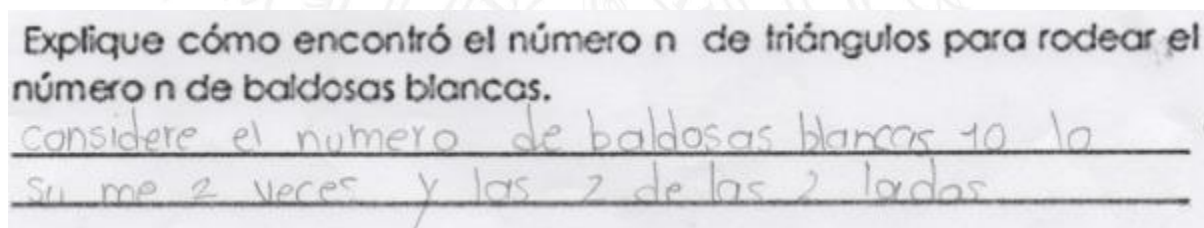 Explique cómo encontró el número n de triángulos para rodear el
número n de baldosas blancas.
considere el numero de baldosas blancas 10 lo
su me 2 veces y las 2 de las 2 lados